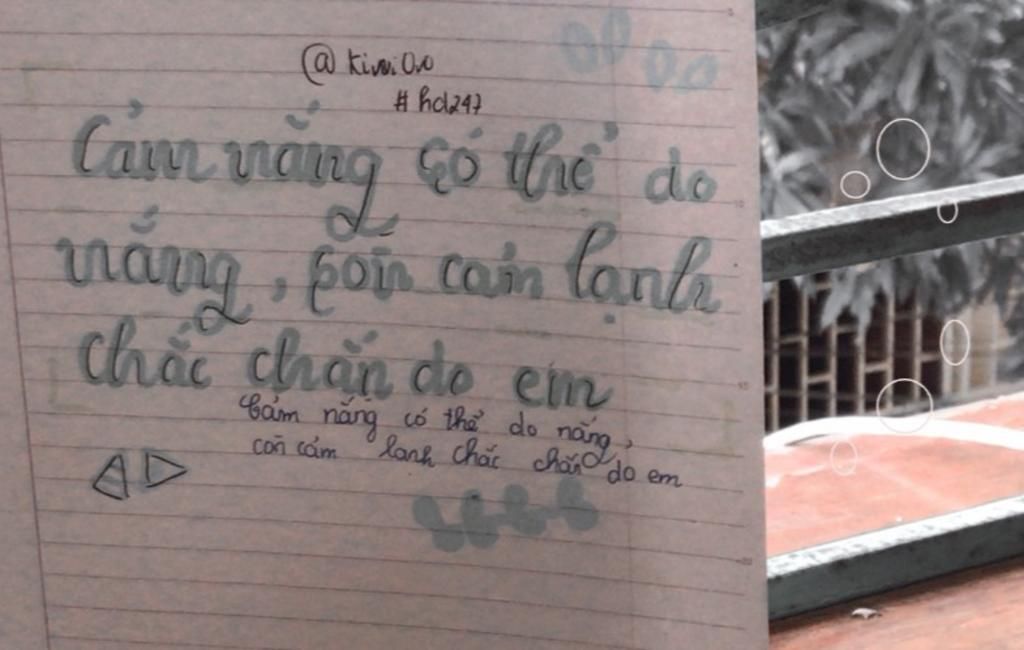 @kiwi0.0
#hd247
Cảm nắng có thể do
nắng, còn cảm lạnh
chắc chắn do em
Cảm nắng có thể do nắng,
còn cảm lạnh chắc chắn do em